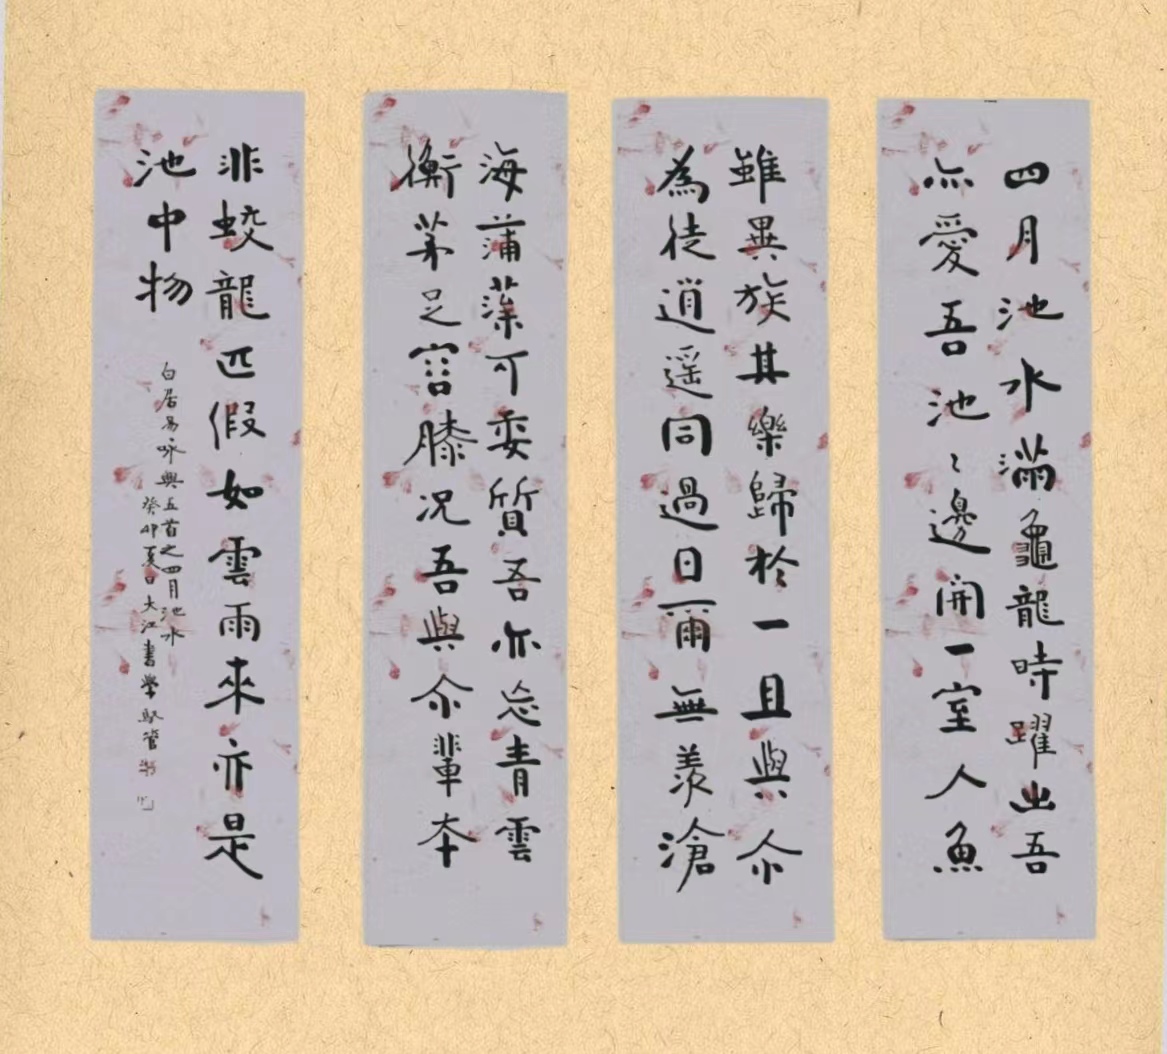 四月池水滿龜龍時躍出吾
亦愛吾池〻邊開一室人魚
雖異族其樂歸於一且與尒
為徒逍遥同過日爾無羨滄
海蒲藻可委質吾亦忘青雲
衡茅足容膝況吾與尒輩本
非蛟龍匹假如雲雨來亦是
池中物
白居易咏興五首之四月池水
癸卯夏日大江書學馭管